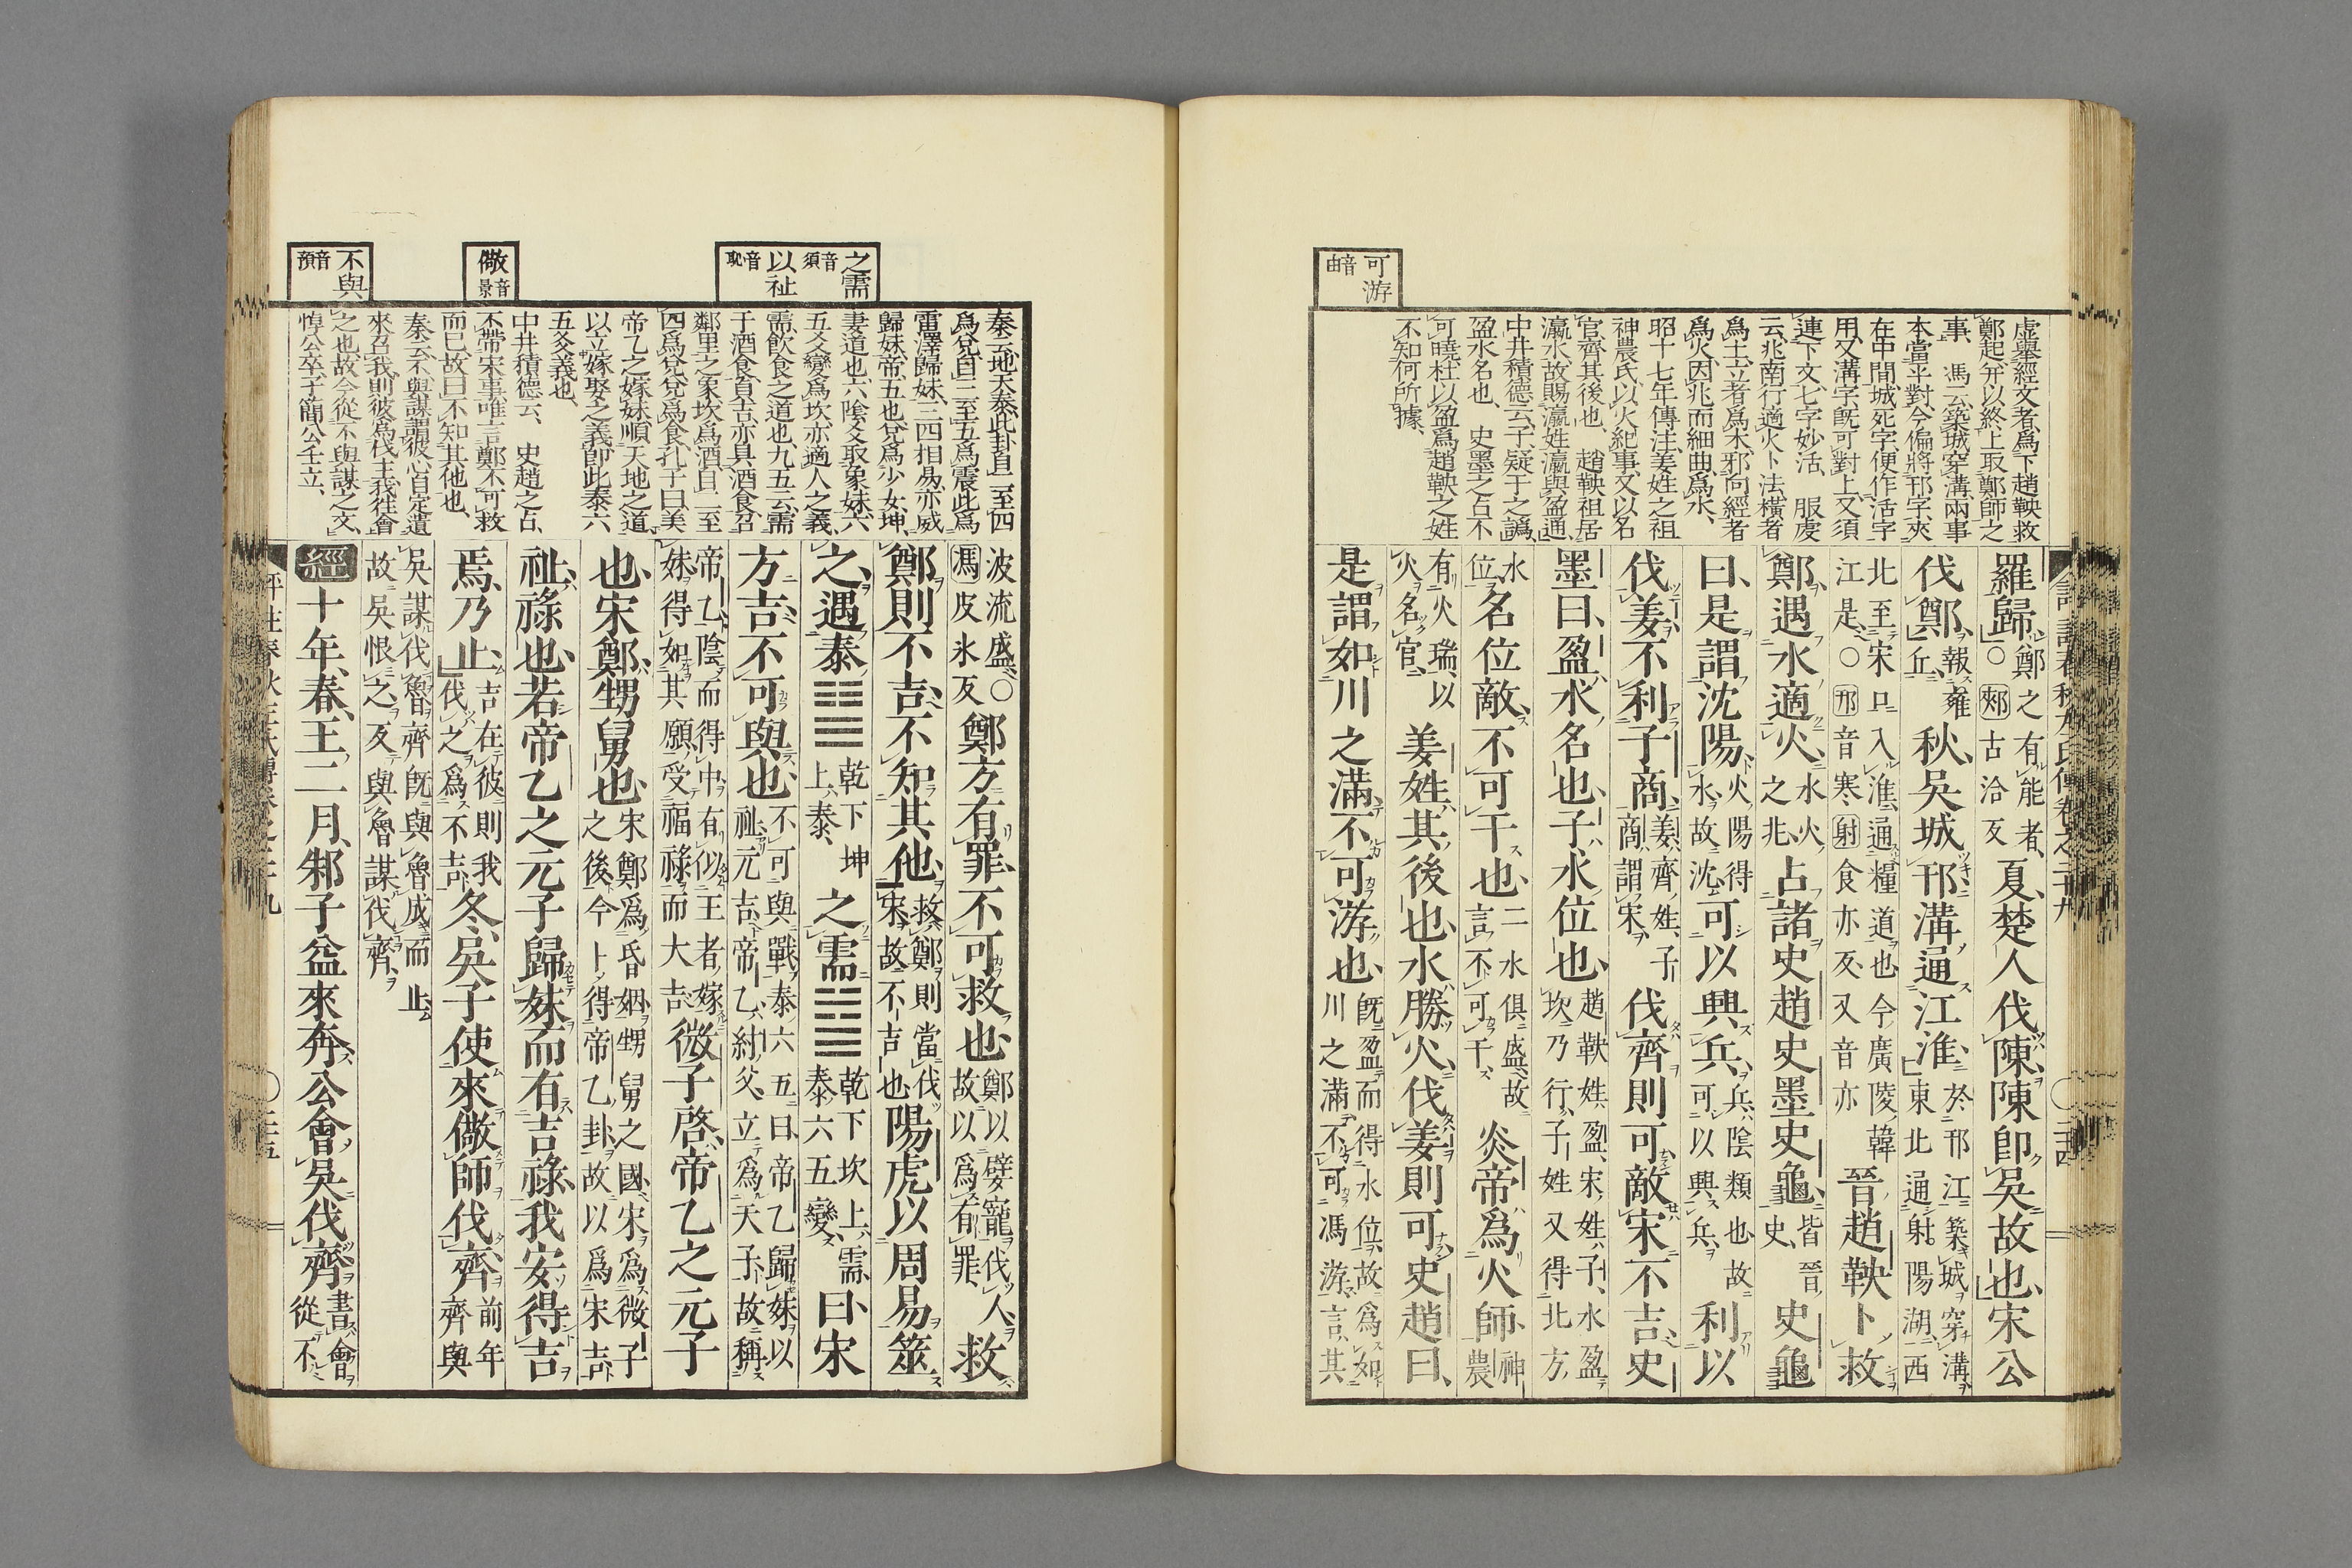 可游
音由
虛舉經文者爲下趙鞅救
鄭起并以終上取鄭師之
事、馮云築城穿溝兩事
本當平對今偏將邗字夾
在中間城死字便作活字
用又溝字旣可對上又須
連下文七字妙活 服虔
云兆南行適火卜法橫者
爲土立者爲木邪向經者
爲火因兆而細曲爲水、
昭十七年傳注姜姓之祖
神農氏以火紀事又以名
官齊其後也、趙鞅祖居
瀛水故賜瀛姓瀛與盈通、
中井積德云子疑于之譌、
盈水名也、史墨之占不
可曉杜以盈爲趙鞅之姓
不知何所據、
羅歸、鄭之有能者、○郟古洽反夏楚人伐陳陳卽吳故也宋公
伐鄭、報雍丘、秋、吳城邗溝通江淮、於邗江築城穿溝東北通射陽湖西
北至宋口入淮通糧道也今廣陵韓江是○邗音寒射食亦反又音亦晉趙鞅卜救
鄭遇水適火、水火之兆占諸史趙史墨史龜、皆晉史、史龜
曰、是謂沈陽、火陽得水故沈可以興兵、兵陰類也故可以興兵利以
伐姜不利子商、姜齊姓子商謂宋伐齊則可敵宋不吉史
墨曰、盈水名也、子水位也、趙鞅姓盈、宋姓子水盈坎乃行子姓又得北方、
水位名位敵、不可干也、二水俱盛故言不可干炎帝爲火師、神農
有火瑞以火名官姜姓其後也、水勝火、伐姜則可史趙曰、
是謂如川之滿不可游也、旣盈而得水位故爲如川之滿不可馮游言其
評註春秋左氏傳卷之二十九
二十四
之需
音須
以祉
音恥
儆
音景
不與
音預
秦云地天泰此卦自二至四
爲兌自三至五爲震此爲
雷澤歸妹三四相易亦威
歸妹帝五也兌爲少女坤
妻道也六陰爻取象妹六
五爻變爲坎亦適人之義
需飲食之道也九五云需
于酒食貞吉亦具酒食召
鄰里之象坎爲酒自二至
四爲兌兌爲食孔子曰美
帝乙之嫁妹順天地之道
以立嫁娶之義卽此泰六
五爻義也、
中井積德云、史趙之占、
不帶宋事唯言鄭不可救
而已故曰不知其他也、
秦云不與謀謂彼心自定遣
來召我則彼爲伐主我往會
之也故今從不與謀之文、
悼公卒子簡公壬立、
波流盛、○馮皮氷反鄭方有罪不可救也鄭以嬖寵伐人故以爲有罪、救
鄭則不吉不知其他、救鄭則當伐宋故不吉也陽虎以周易筮
之、遇泰䷊乾下坤上泰、之需䷄乾下坎上需、泰六五變、曰宋
方吉不可與也、不可與戰泰六五曰帝乙歸妹以祉元吉帝乙紂父立爲天子故稱
帝乙陰而得中有似王者嫁妹得如其願受福祿而大吉微子啓帝乙之元子
也、宋鄭甥舅也、宋鄭爲昏姻甥舅之國宋爲微子之後今卜得帝乙卦故以爲宋吉
祉、祿也、若帝乙之元子歸妹而有吉祿我安得吉
焉、乃止、吉在彼則我伐之爲不吉冬、吳子使來儆師伐齊前年齊與
吳謀伐魯齊旣與魯成而止故吳恨之反與魯謀伐齊、
經十年、春、王二月、邾子益來奔、公會吳伐齊、書會從不
評註春秋左氏傳卷之二十九
二十五